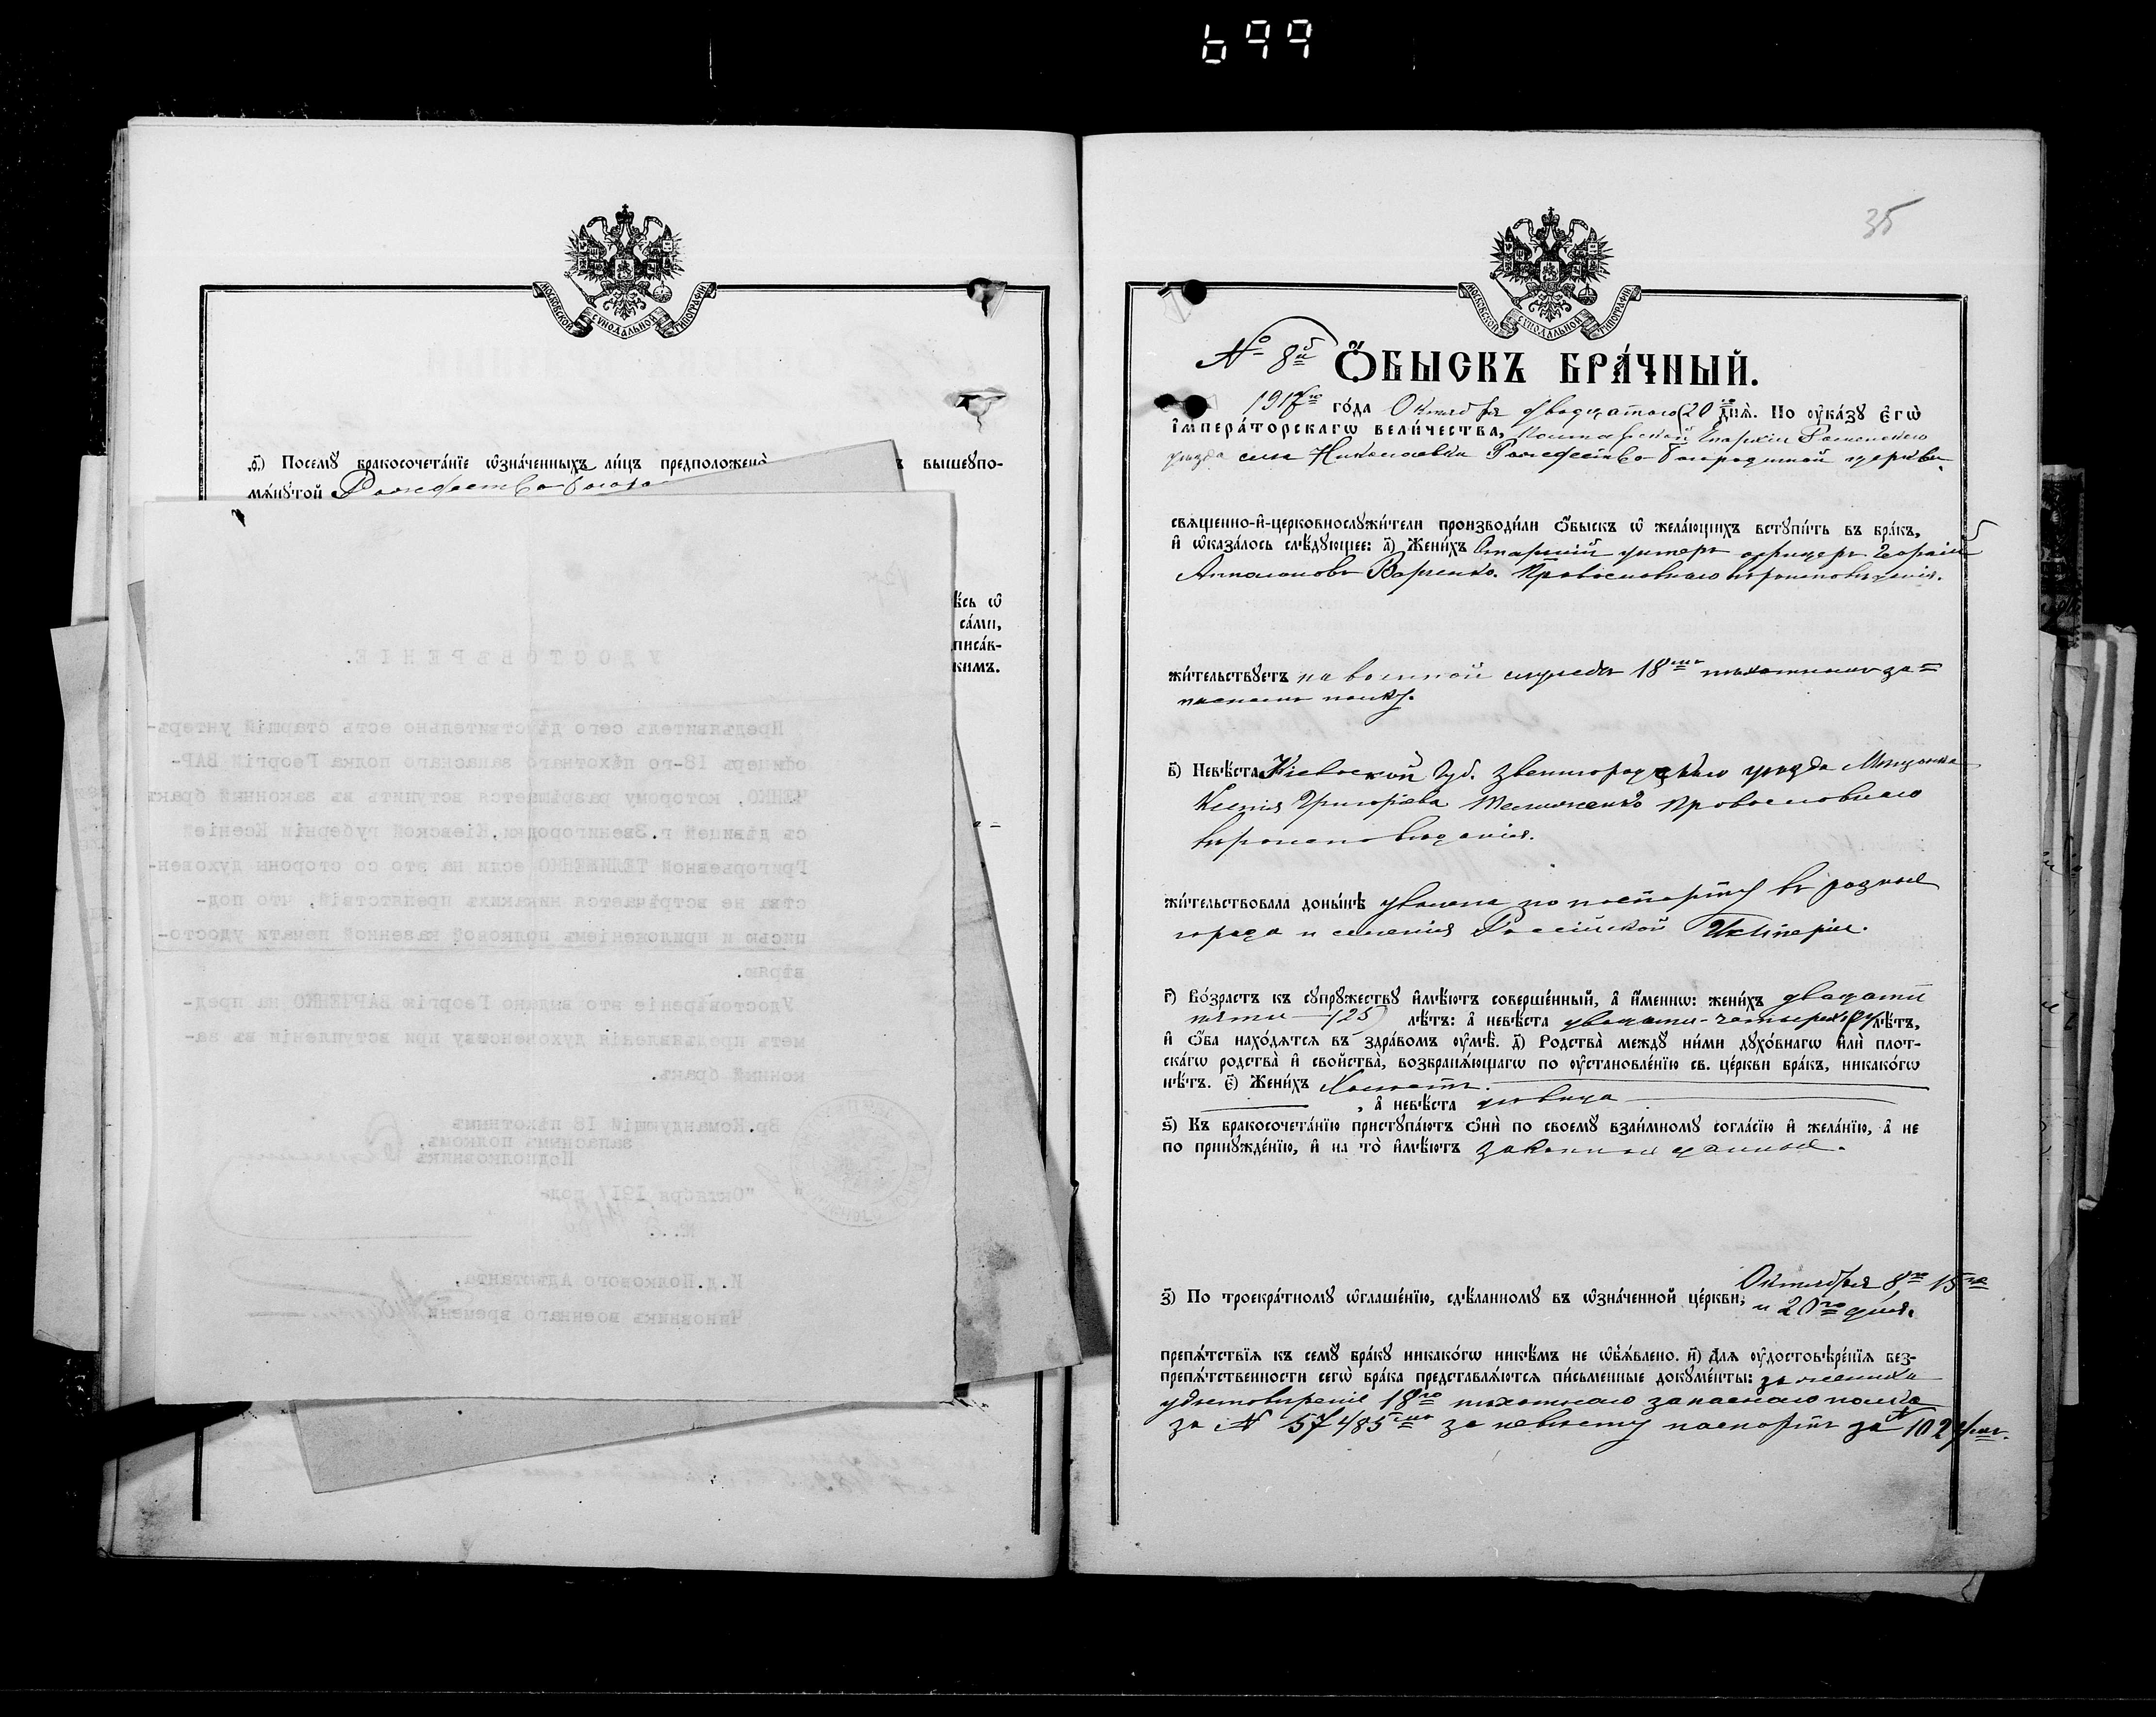 699
МОСКОВСКОЙ СѴНОДАЛЬНОЙ ТИПОГРАФІИ
ѳ҃) Посемꙋ бракосочета́нїе ѡ҆зна́ченныхъ ли́цъ предположено̀ въ вышеꙋпо-
мѧ́нꙋтой Рождество Богоро
ѣ́сь ѡ҆
са́ми,
писа́в-
кимъ.
УДОСТОВѢРЕНІЕ.
Предъявитель сего дѣйствительно есть старшій унтеръ-
офицеръ 18-го пѣхотнаго запаснаго полка Георгій ВАР-
ЧЕНКО, которому разрѣшается вступить въ законный бракъ
съ дѣвицей г.Звенигородки,Кіевской губерніи Ксеніей
Григорьевной ТЕЛИЖЕНКО если на это со стороны духовен-
ства не встрѣчается никакихъ препятствій, что под-
писью и приложеніемъ полковой казенной печати удосто-
вѣряю.
Удостовѣреніе это выдано Георгію ВАРЧЕНКО на пред-
метъ предъявленія духовенству при вступленіи въ за-
конный бракъ.
Вр.Командующій 18 пѣхотнымъ
запаснымъ полкомъ,
Подполковникъ
" "Октября 1917 года
№
И.д.Полкового Адъютанта,
Чиновникъ военнаго времени
35
МОСКОВСКОЙ СѴНОДАЛЬНОЙ ТИПОГРАФІИ
№ 8й ѺБЫСКЪ БРА́ЧНЫЙ.
1917го го́да Октября двадцатаго (20го днѧ̀. По ᲂу҆ка́зꙋ є҆гѡ̀
і҆мпера́торскагѡ вели́чества, Полтавской Епархіи Роменскаго
уѣзда села Николаевки Рождество Богородичной церкви
свѧщенно-и҆-церковнослꙋжи́тели производи́ли ѻ҆́быскъ ѡ҆ жела́ющихъ встꙋпи́ть въ бра́къ,
и҆ ѡ҆каза́лось слѣ́дꙋющее: а҃) Жени́хъ Старшій унтеръ офицеръ Георгій
Варченко. Православнаго вѣроисповѣданія.
жи́тельствꙋетъ на военной службѣ 18мъ пѣхотномъ за=
пасномъ полку.
в҃) Невѣ́ста Кіевской Губ. Звенигородскаго уѣзда Мѣщанка
Ксенія Григоріева Тележенко Православнаго
вѣроисповѣданія.
жи́тельствовала доны́нѣ уволена по паспорту въ разные
города и селенія Россійской Имперіи.
г҃) Во́зрастъ къ сꙋпрꙋжествꙋ и҆мѣ́ютъ соверше́нный, а҆ и҆́меннѡ: жени́хъ двадцати
пяти (25) лѣ́тъ: а҆ невѣ́ста двадцати-четырехъ лѣ́тъ,
и҆ ѻ҆́ба нахо́дѧтсѧ въ здра́вомъ ᲂу҆мѣ̀. д҃) Родства̀ междꙋ ни́ми дꙋхо́внагѡ и҆лѝ плот-
ска́гѡ родства̀ и҆ сво́йства̀, возбранѧ́ющагѡ по ᲂу҆становле́нїю св. це́ркви бра́къ, никако́гѡ
нѣ́тъ. є҃) Жени́хъ холостъ.
, а҆ невѣ́ста дѣвица
ѕ҃) Къ бракосочета́нїю пристꙋпа́ютъ ѻ҆нѝ по своемꙋ взаи́мномꙋ согла́сїю и҆ жела́нїю, а҆ не
по принꙋжде́нїю, и҆ на то̀ и҆мѣ́ютъ законныя данныя.
з҃) По троекра́тномꙋ ѡ҆глаше́нїю, сдѣ́ланномꙋ въ ѡ҆зна́ченной це́ркви; Октября 8го 15го
и 20го дня.
препѧ́тствїѧ къ семꙋ бра́кꙋ никако́гѡ никѣ́мъ не ѡ҆б̾ѧ́влено. и҃) Длѧ ᲂу҆достовѣре́нїѧ без-
препѧ́тственности сегѡ̀ бра́ка представлѧ́ютсѧ пи́сьменные докꙋме́нты: за жениха
удостовѣреніе 18го пѣхотнаго запаснаго полка
за № 57485мъ за невѣсту паспортъ за №